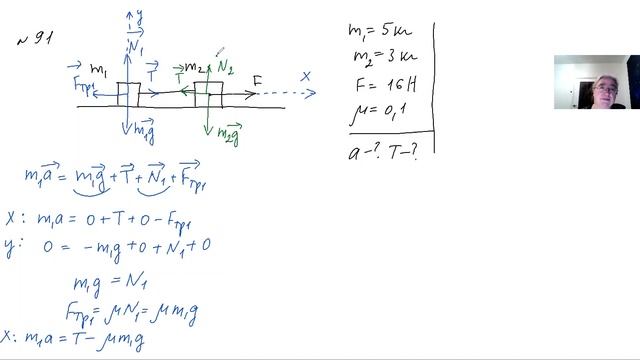 № 91
y
N₁
m₁
Fтр1
T
T
m₂
N₂
F
x
m₁g
m₂g
m₁ = 5 кг
m₂ = 3 кг
F = 16 Н
μ = 0,1
a - ? T - ?
m₁a = m₁g + T + N₁ + Fтр1
x: m₁a = 0 + T + 0 - Fтр1
y: 0 = -m₁g + 0 + N₁ + 0
m₁g = N₁
Fтр1 = μN₁ = μm₁g
x: m₁a = T - μm₁g